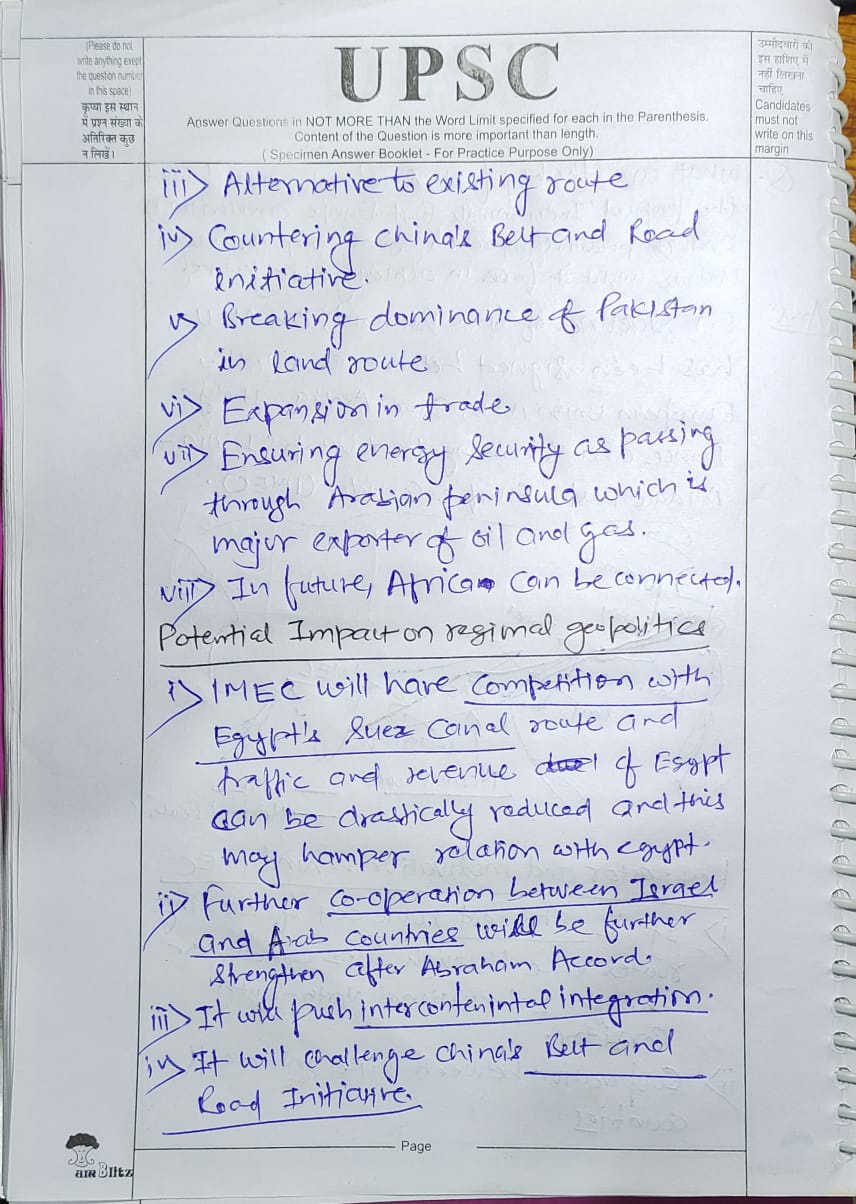 (Please do not
write anything exept
the question number
in this space)
कृप्या इस स्थान
में प्रश्न संख्या के
अतिरिक्त कुछ
न लिखें।
UPSC
Answer Questions in NOT MORE THAN the Word Limit specified for each in the Parenthesis.
Content of the Question is more important than length.
( Specimen Answer Booklet - For Practice Purpose Only)
उम्मीदवारों को
इस हाशिए में
नहीं लिखना
चाहिए
Candidates
must not
write on this
margin
iii) Alternative to existing route
iv) Countering China's Belt and Road
initiative.
v) Breaking dominance of Pakistan
in land route
vi) Expansion in trade
vii) Ensuring energy security as passing
through Arabian peninsula which is
major exporter of oil and gas.
viii) In future, Africa can be connected.
Potential Impact on regional geopolitics
i) IMEC will have competition with
Egypt's Suez Canal route and
traffic and revenue of Egypt
can be drastically reduced and this
may hamper relation with egypt.
ii) Further co-operation between Israel
and Arab countries will be further
strengthen after Abraham Accord.
iii) It will push intercontenintal integration.
iv) It will challenge China's Belt and
Road Initiative.
Page
AIR Blitz